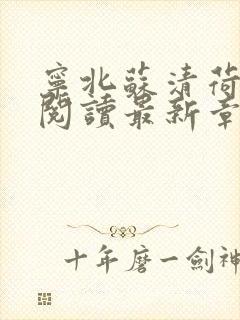 寧北蘇清荷
閱讀最新章
十年磨一劍神